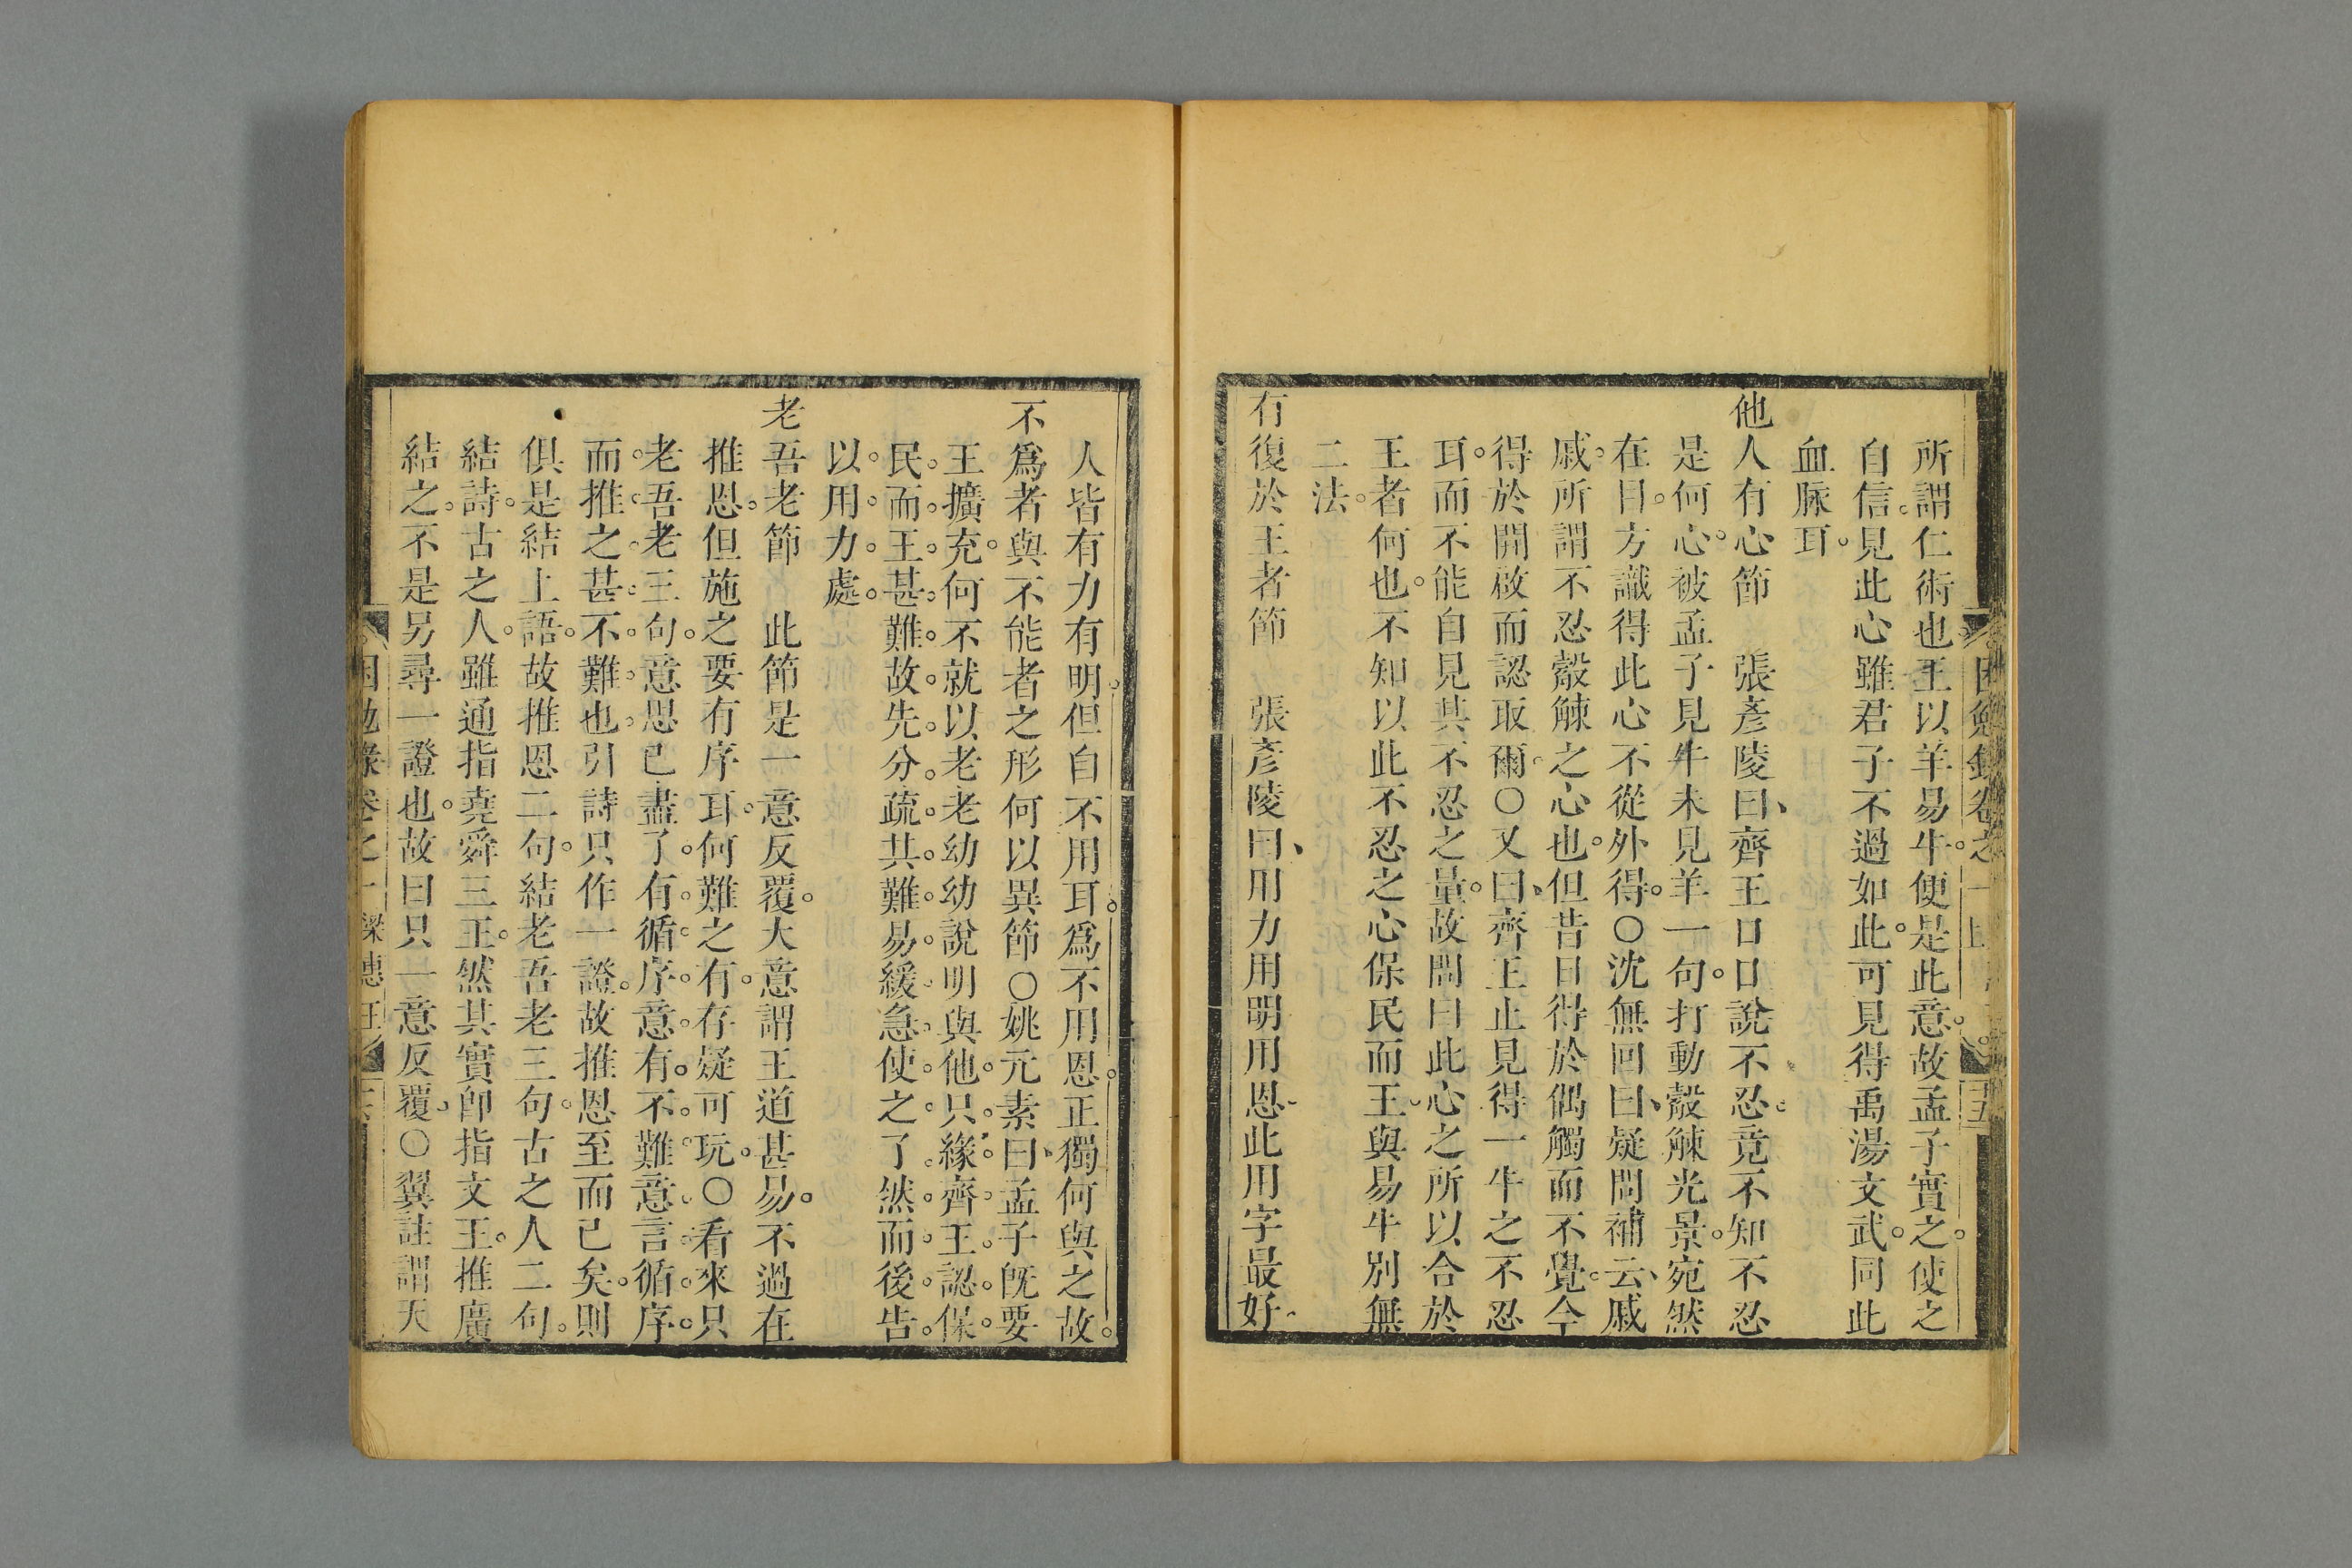 所謂仁術也王以羊易牛。便是此意。故孟子實之。使之
自信。見此心雖君子不過如此。可見得禹湯文武。同此
血脉耳。
他人有心節　張彥陵曰、齊王口口說不忍。竟不知不忍
是何心。被孟子見牛未見羊一句。打動觳觫光景。宛然
在目。方識得此心不從外得。○沈無回曰、疑問補云、戚
戚。所謂不忍觳觫之心也。但昔日得於偶觸而不覺。今
得於開啟而認取爾。○又曰、齊王止見得一牛之不忍
耳。而不能自見其不忍之量。故問曰此心之所以合於
王者何也。不知以此不忍之心保民而王。與易牛別無
二法。
有復於王者節　張彥陵曰、用力用明用恩。此用字最好。
人皆有力有明。但自不用耳。爲不用恩。正獨何與之故。
不爲者與不能者之形何以異節○姚元素曰、孟子旣要
王擴充。何不就以老老幼幼說明與他。只緣齊王認保
民而王甚難。故先分疏其難易緩急。使之了然。而後告
以用力處。
老吾老節　此節是一意反覆。大意謂王道甚易。不過在
推恩。但施之要有序耳。何難之有。存疑可玩。○看來只
老吾老三句。意思已盡了。有循序意。有不難意。言循序
而推之甚不難也。引詩只作一證。故推恩至而已矣。則
俱是結上語。故推恩二句。結老吾老三句。古之人二句。
結詩。古之人。雖通指堯舜三王。然其實卽指文王。推廣
結之。不是另尋一證也。故曰只一意反覆。○翼註謂天